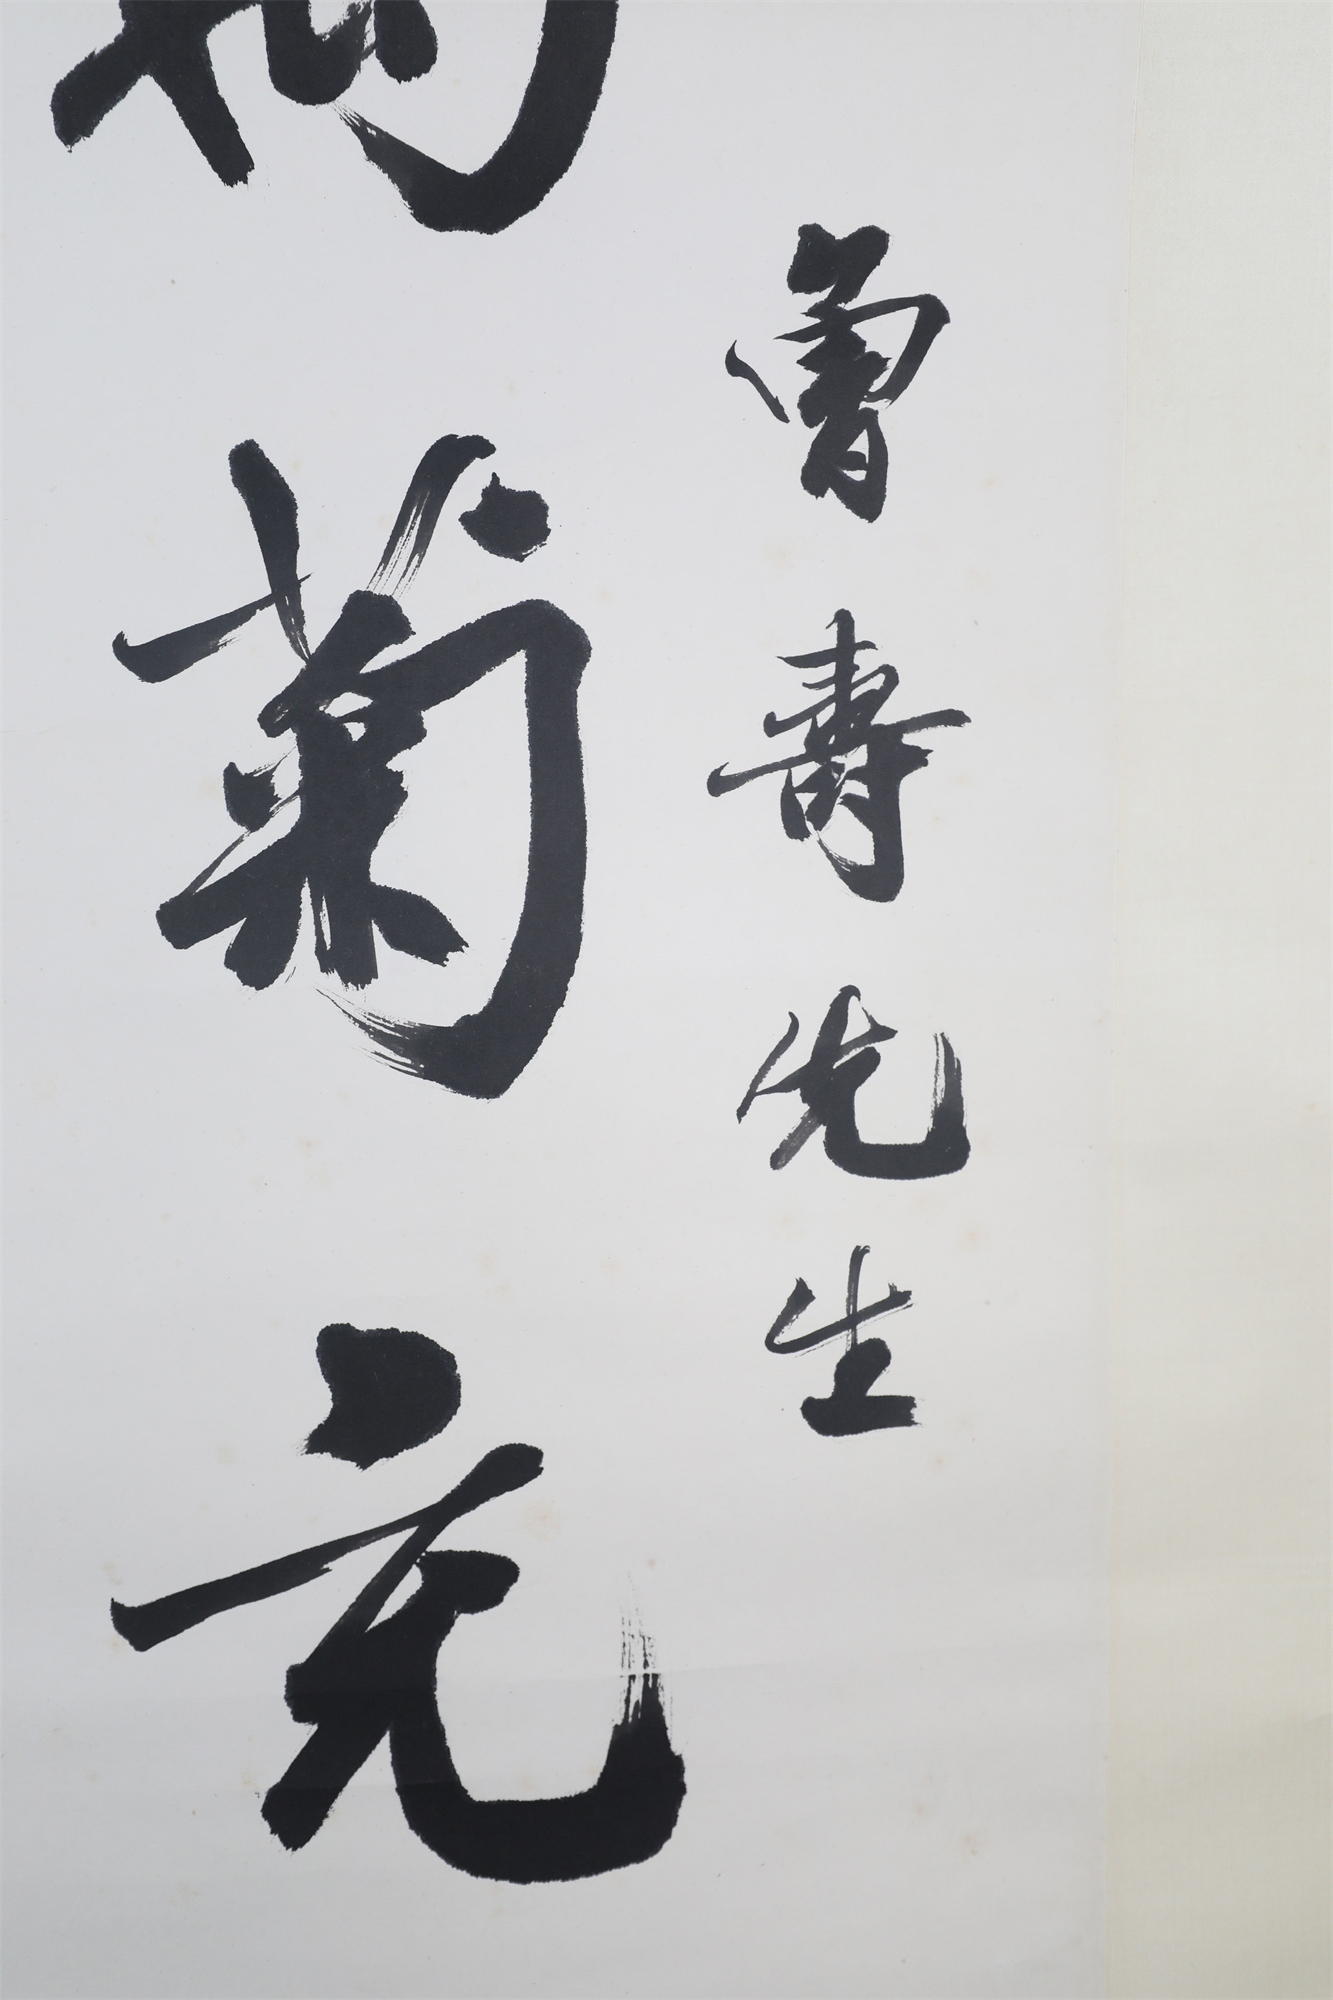 曾壽先生
菊充